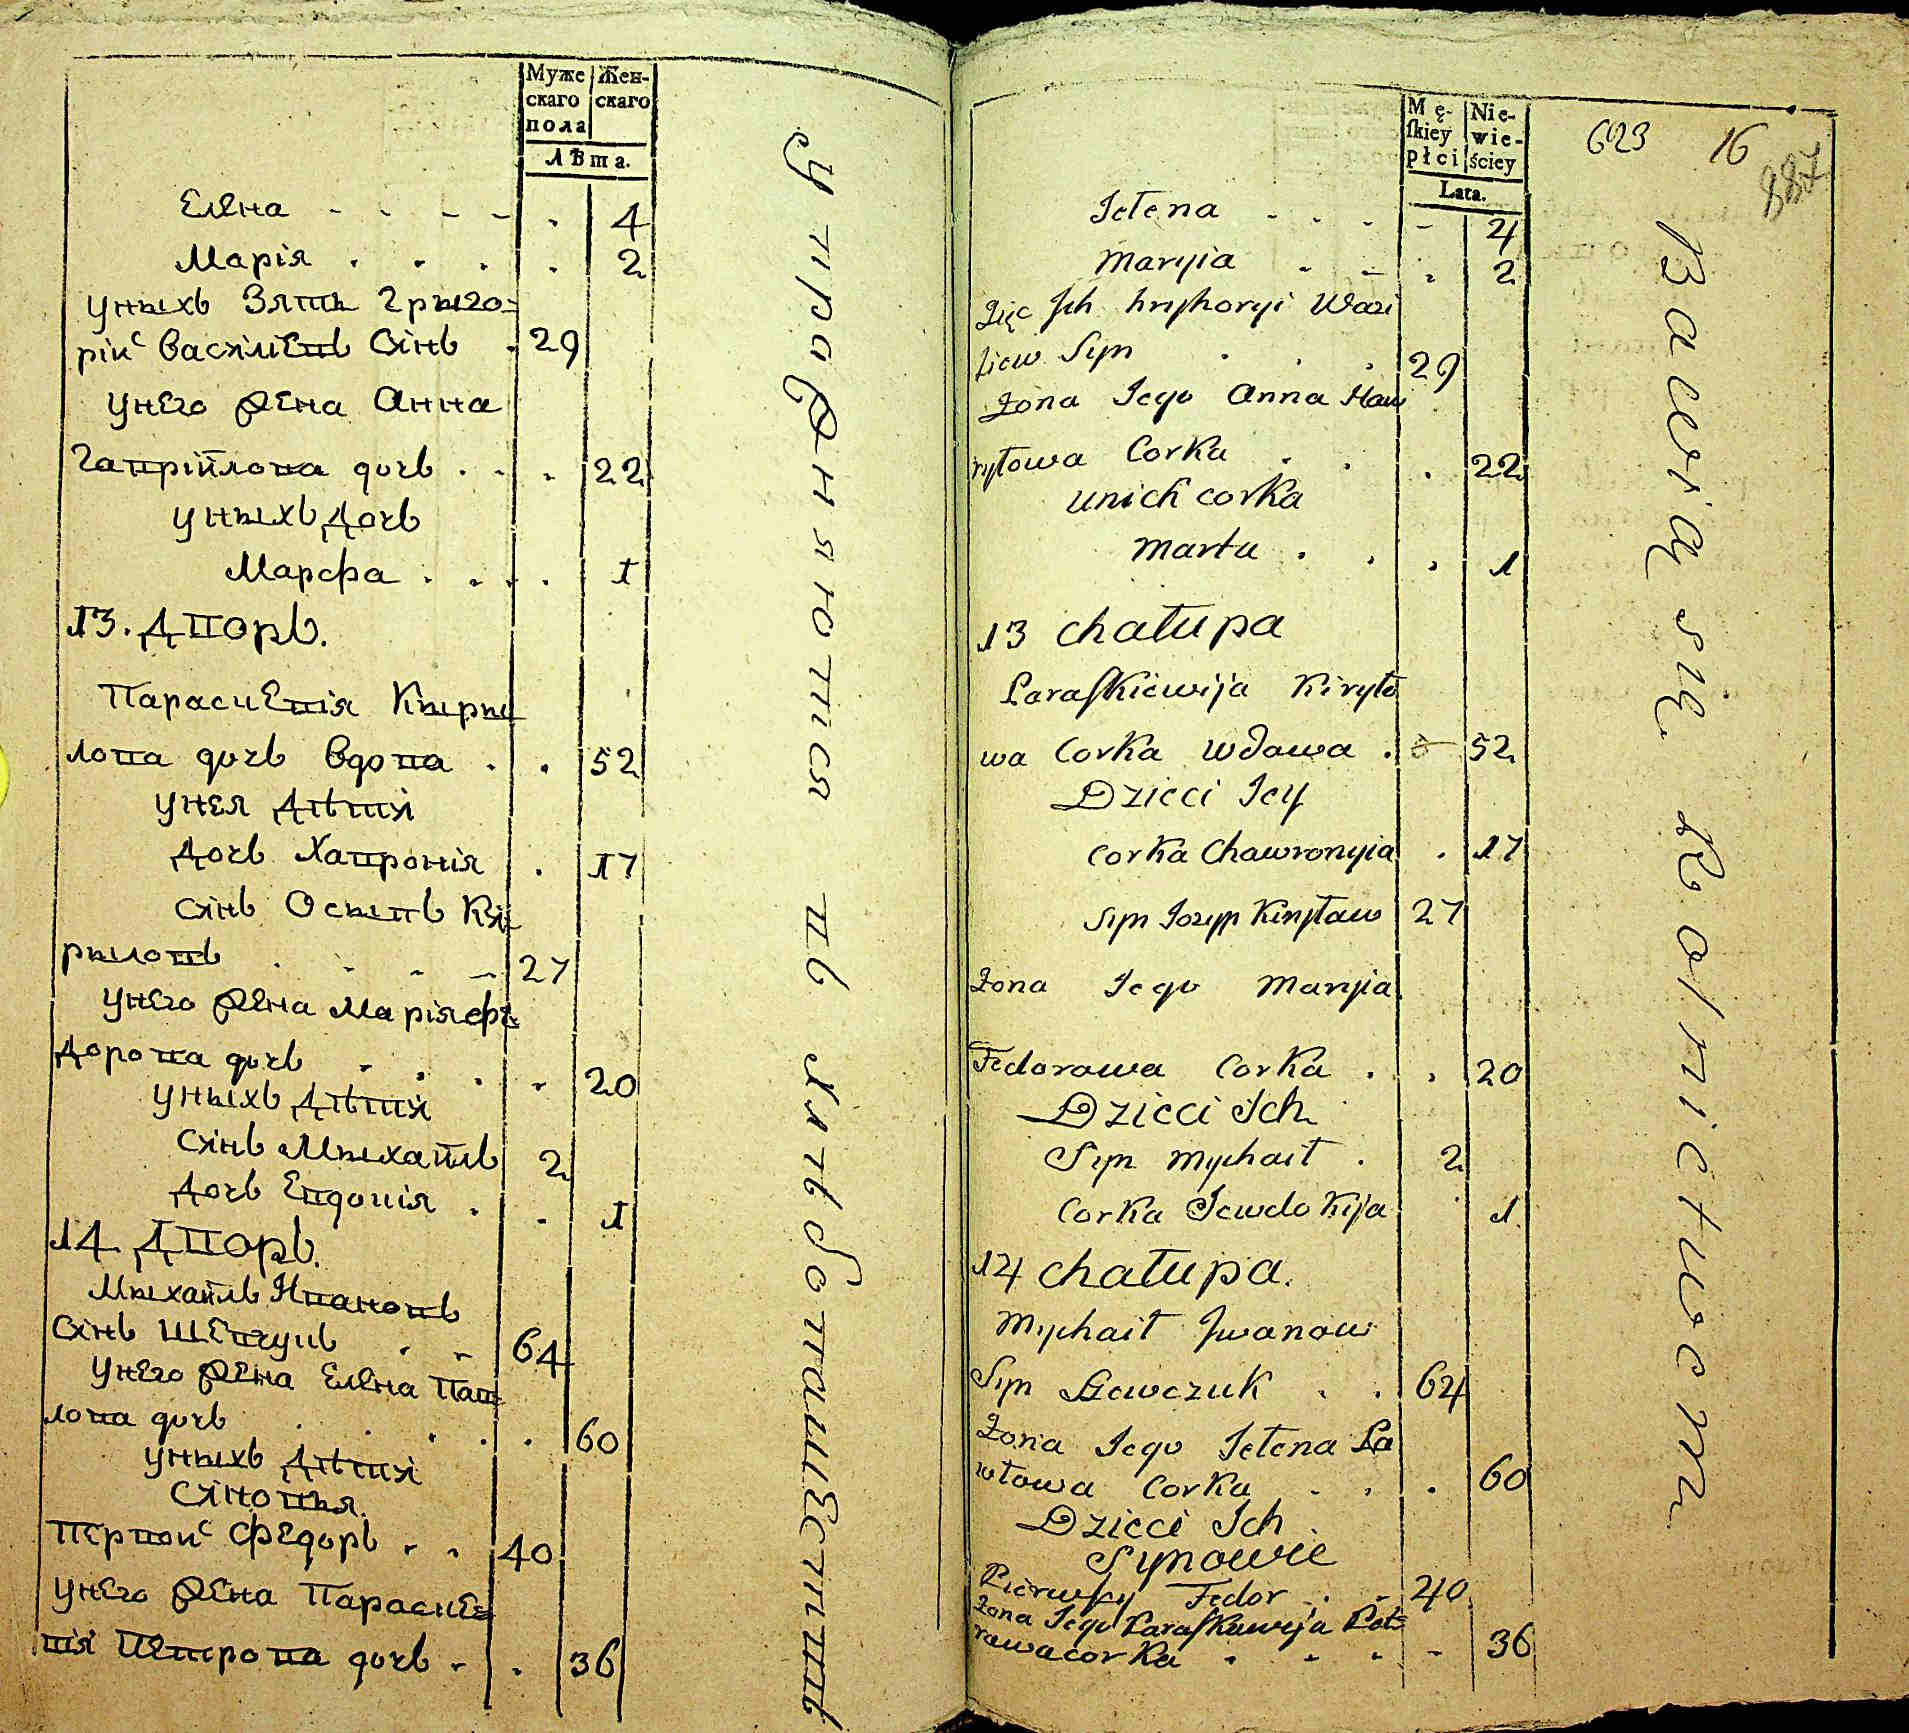 Муже Жен-
скаго скаго
пола
Лѣта.
Елена - - - - . 4
Марія . . . . . 2
уныхъ Зять Грыго-
рій Василіевъ Сынъ . 29
унего жена Анна
Гаврійлова дочь . . . 22
уныхъ дочь
Марфа . . . . 1
13. Дворъ.
Параскевія Кыры
лова дочь вдова . . 52
унея дѣти
дочь Хавронія . 17
сынъ Осыпъ Кы
рыловъ . - - - 27
унего жена Марія Фе
дорова дочь . . . . 20
уныхъ дѣти
сынъ Мыхайлъ 2
дочь Евдокія . . 1
14 Дворъ.
Мыхайлъ Ивановъ
Сынъ Шевчукъ . . 64
унего жена Елена Пав
лова дочь . . . . . 60
уныхъ дѣти
сыновья
первой Федоръ . . 40
унего жена Параскев
ія Петрова дочь . . 36
упражняются въ хлѣбопашествѣ
Mę- Nie-
ſkiey wie-
płci ściey
Lata.
623 16
887
Jełena - - - - 4
Maryia . - . 2
Zięc Jch hryhoryi Wasi
liew Syn . . . 29
Żona Jego Anna Haw
ryłowa Corka . . . 22
unich corka
Marta . . . 1
13 chałupa
Paraſkiewija Kiryło
wa Corka wdowa . 52
Dzieci Jey
corka Chawronyia . 17
Syn Jozyp Kiryław 27
Żona Jego Maryia
Fedorawa Corka . . 20
Dzieci Jch
Syn Mychaił . 2
Corka Jewdokija 1
14 chałupa.
Mychaił Jwanow
Syn Szewczuk . . 64
Żona Jego Jełena Pa
włowa Corka . . . 60
Dzieci Jch
Synowie
Pierwſzy Fedor . . 40
Żona Jego Paraſkiewija Pet
rawa corka . . . - 36
Bawią się Rolnictwem